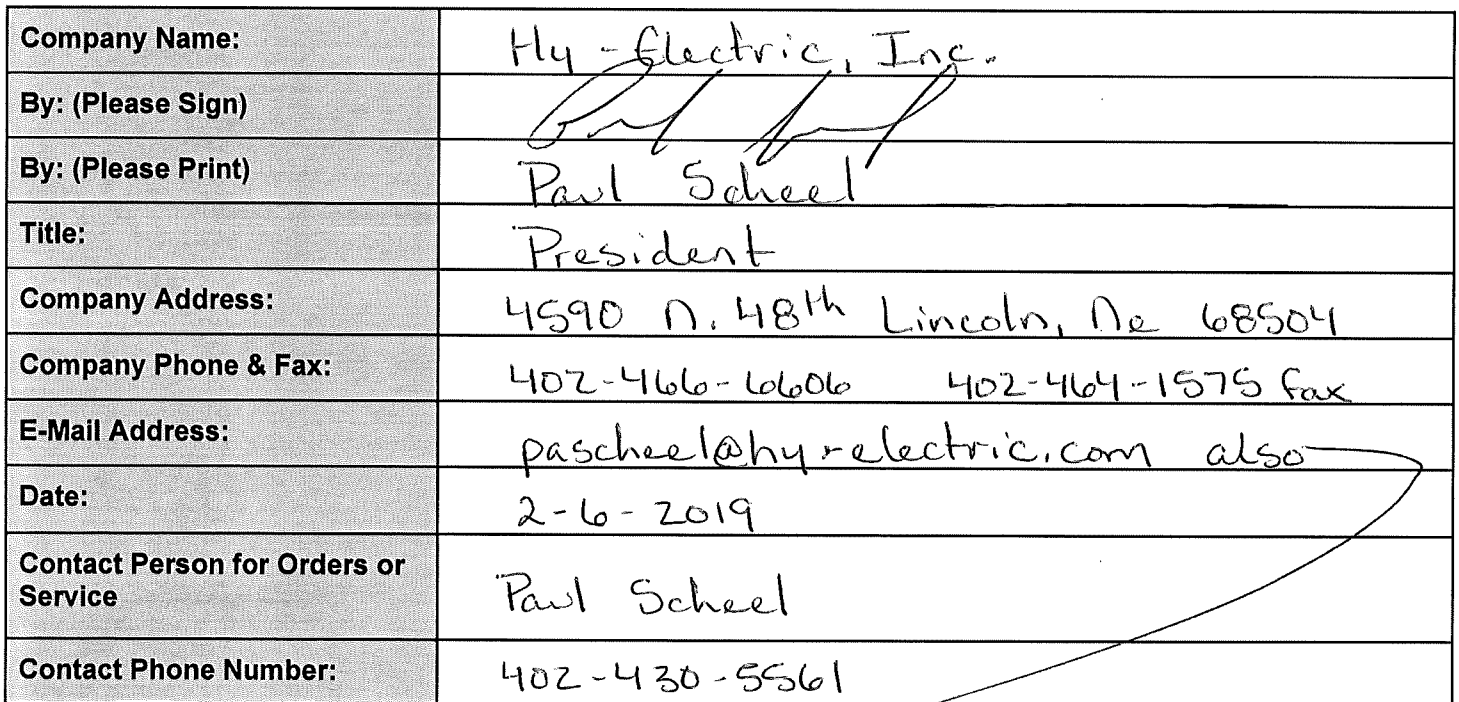 Company Name: Hy-Electric, Inc.
By: (Please Sign)
By: (Please Print) Paul Scheel
Title: President
Company Address: 4590 N. 48th Lincoln, Ne 68504
Company Phone & Fax: 402-466-6606 402-464-1575 fax
E-Mail Address: pascheel@hy-electric.com also
Date: 2-6-2019
Contact Person for Orders or
Service Paul Scheel
Contact Phone Number: 402-430-5561